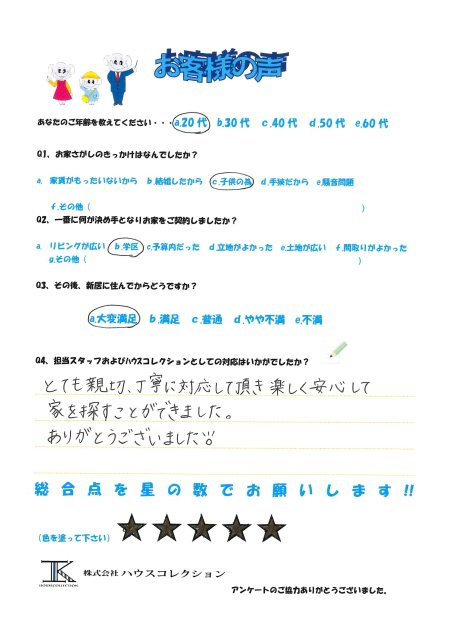 お客様の声
あなたのご年齢を教えてください・・・a.20代 b.30代 c.40代 d.50代 e.60代
Q1、お家さがしのきっかけはなんでしたか？
a. 家賃がもったいないから b.結婚したから c.子供の為 d.手狭だから e.騒音問題
f.その他（ ）
Q2、一番に何が決め手となりお家をご契約しましたか？
a. リビングが広い b.学区 c.予算内だった d.立地がよかった e.土地が広い f.間取りがよかった
g.その他（ ）
Q3、その後、新居に住んでからどうですか？
a.大変満足 b.満足 c.普通 d.やや不満 e.不満
Q4、担当スタッフおよびハウスコレクションとしての対応はいかがでしたか？
とても親切、丁寧に対応して頂き楽しく安心して
家を探すことができました。
ありがとうございました!!
総合点を星の数でお願いします!!
（色を塗って下さい）★★★★★
HOUSECOLLECTION 株式会社 ハウスコレクション
アンケートのご協力ありがとうございました。